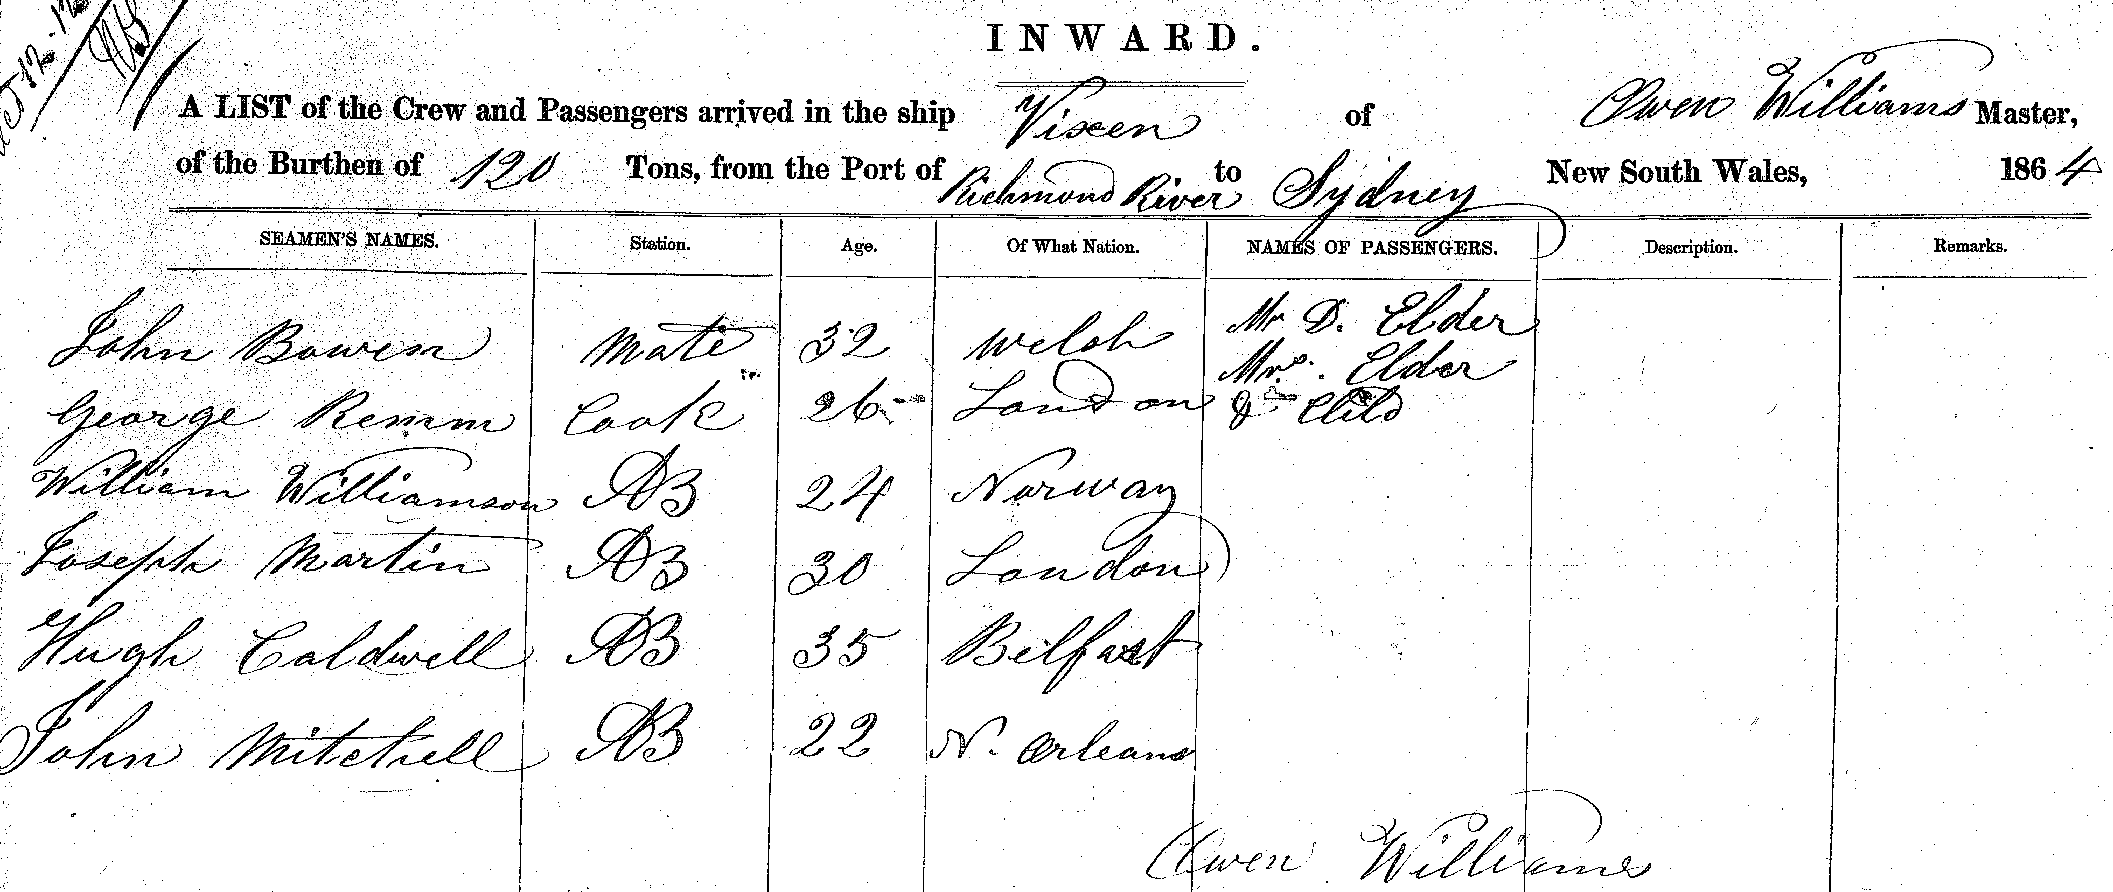 INWARD.
A LIST of the Crew and Passengers arrived in the ship Vixen of Owen Williams Master,
of the Burthen of 120 Tons, from the Port of Richmond River to Sydney New South Wales, 1864
SEAMEN'S NAMES. Station. Age. Of What Nation. NAMES OF PASSENGERS. Description. Remarks.
John Bowen Mate 32 Welch Mr D. Elder
Mrs. Elder
George Remm Cook 26 London & Child
William Williamson AB 24 Norway
Joseph Martin AB 30 London
Hugh Caldwell AB 35 Belfast
John Mitchell AB 22 N. Orleans
Owen Williams